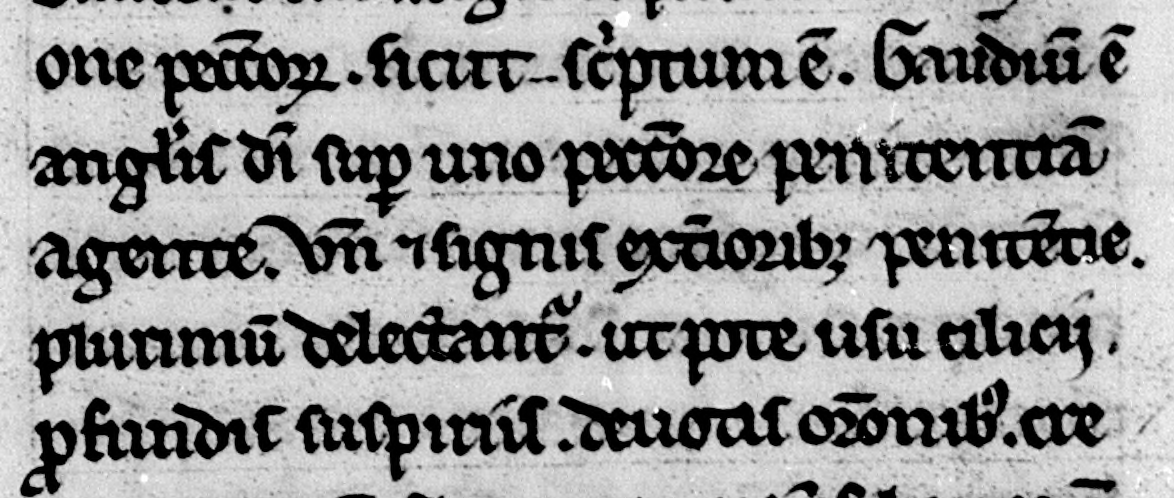 one pecc̄oꝝ. sicut scͥptum ē. Gaudiū ē
angl̓is dī suꝑ uno pecc̄ore penitentiā
agente. Vn̄ ⁊ signis ext̄ioribꝫ penitētie.
plurimū delectant᷑. ut pote usu cilicij.
ꝓfundis suspiriis. deuotis or̄onibꝰ. cre